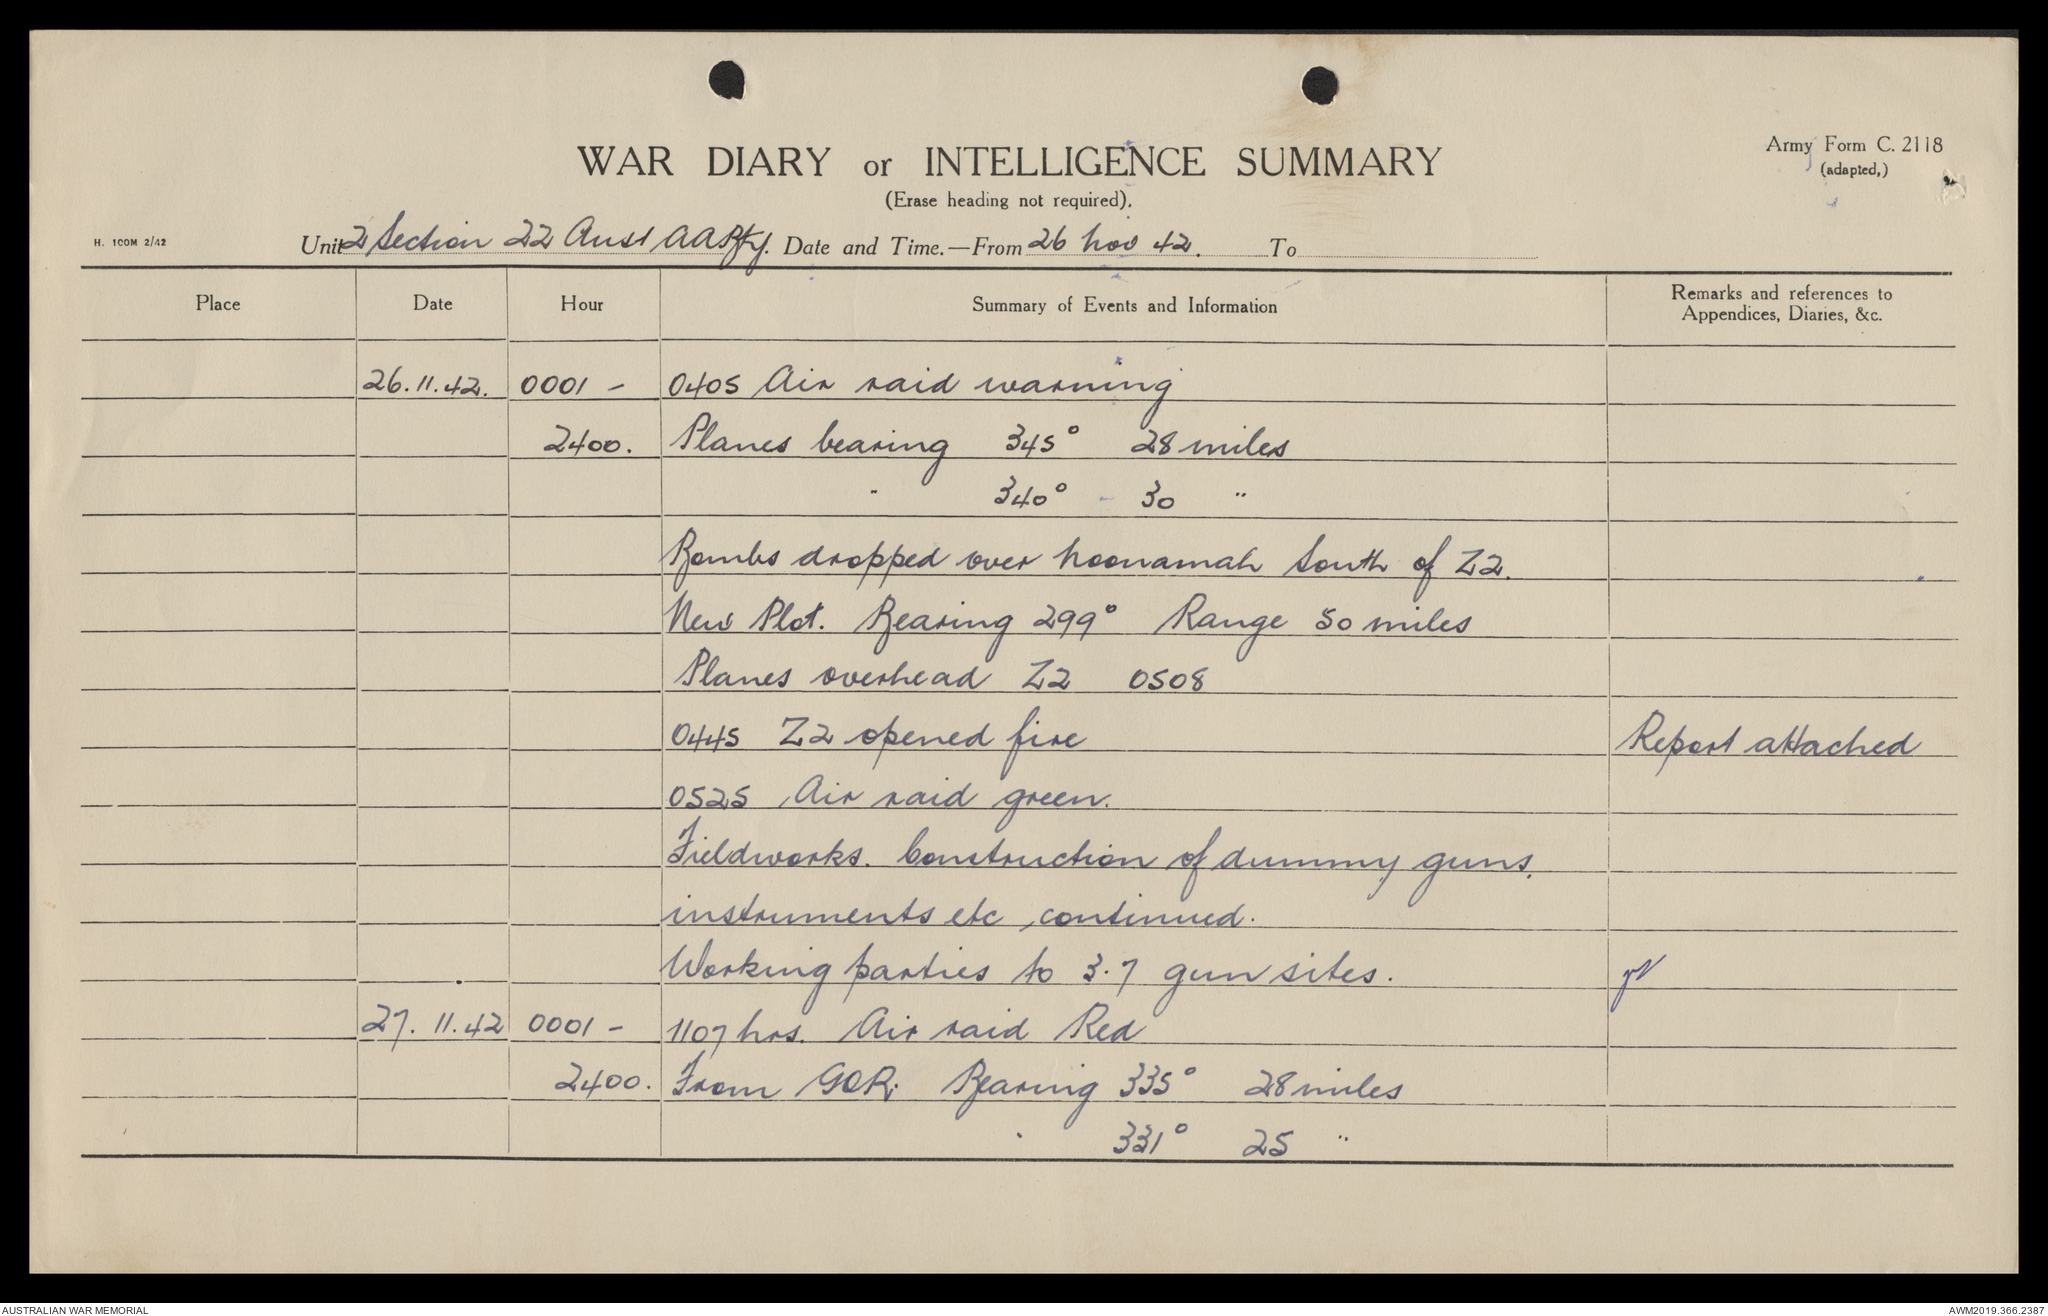 WAR DIARY or INTELLIGENCE SUMMARY
(Erase heading not required).
Army Form C. 2118
(adapted,)
H. 1COM 2/42
Unit 2 Section 22 Aust AA Bty. Date and Time.—From 26 Nov 42. To
Place Date Hour Summary of Events and Information Remarks and references to
Appendices, Diaries, &c.
26.11.42. 0001 - 0405 Air raid warning
2400. Planes bearing 345° 28 miles
" 340° - 30 "
Bombs dropped over Noonamah South of Z2.
New Plot. Bearing 299° Range 50 miles
Planes overhead Z2 0508
0445 Z2 opened fire Report attached
0525 Air raid green.
Fieldworks. Construction of dummy guns,
instruments etc, continued.
Working parties to 3.7 gun sites.
27. 11.42 0001 - 1107 hrs. Air raid Red
2400. From GOR; Bearing 335° 28 miles
" 331° 25 "
AUSTRALIAN WAR MEMORIAL
AWM2019.366.2387